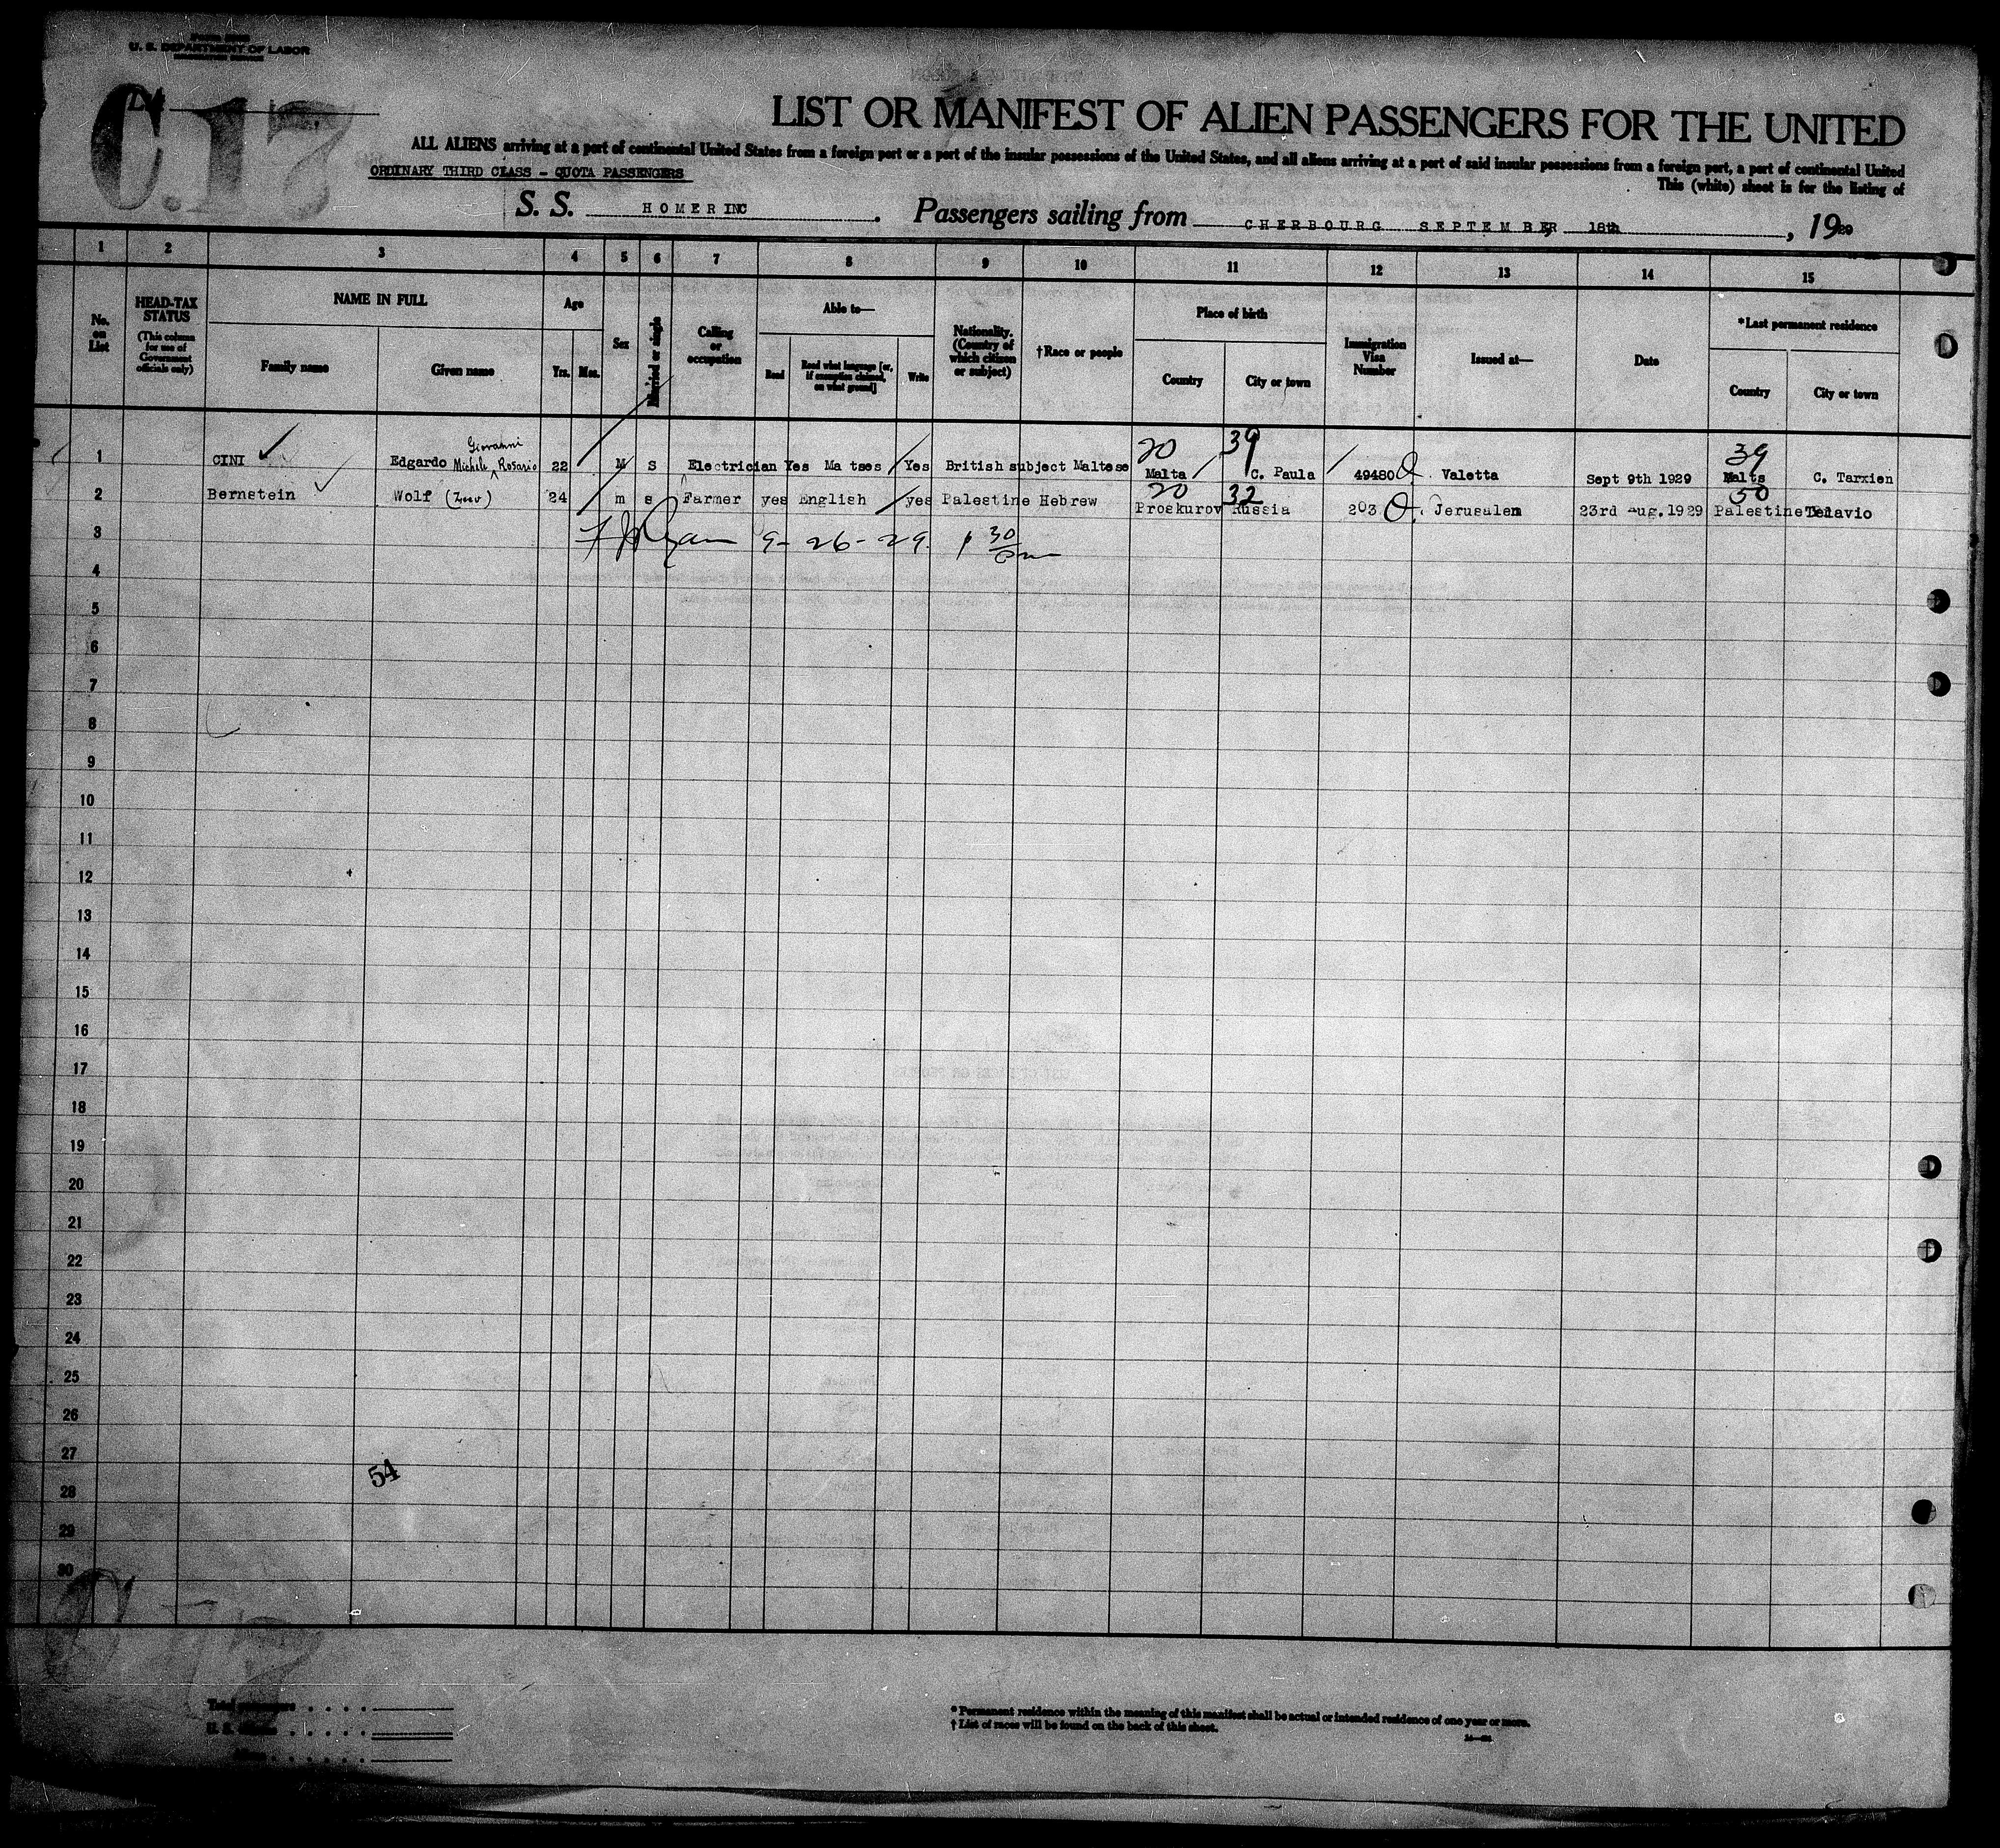 U. S. DEPARTMENT OF LABOR
C.17
LIST OR MANIFEST OF ALIEN PASSENGERS FOR THE UNITED
ALL ALIENS arriving at a port of continental United States from a foreign port or a port of the insular possessions of the United States, and all aliens arriving at a port of said insular possessions from a foreign port, a port of continental United
This (white) sheet is for the listing of
ORDINARY THIRD CLASS - QUOTA PASSENGERS
S. S. HOMERINC. Passengers sailing from CHERBOURG SEPTEMBER 18th, 19
1 2 3 4 5 6 7 8 9 10 11 12 13 14 15
No. on List
HEAD-TAX STATUS
(This column for use of Government officials only)
NAME IN FULL
Family name Given name
Age
Yrs. Mos.
Sex
Married or single
Calling or occupation
Able to—
Read Read what language [or, if exemption claimed, on what ground] Write
Nationality. (Country of which citizen or subject)
†Race or people
Place of birth
Country City or town
Immigration Visa Number
Issued at—
Date
*Last permanent residence
Country City or town
Giovanni
20 39 39
1 CINI Edgardo Michele Rosario 22 M S Electrician Yes Ma tses Yes British subject Maltese Malta C. Paula 49480 Valetta Sept 9th 1929 Malta C. Tarxien
20 32 50
2 Bernstein Wolf (Zeev) 24 m s Farmer yes English yes Palestine Hebrew Proskurov Russia 203 Jerusalem 23rd Aug. 1929 Palestine
3 Ryan 9-26-29 1 30 pm
4
5
6
7
8
9
10
11
12
13
14
15
16
17
18
19
20
21
22
23
24
25
26
27
54
28
29
30
Total passengers
U. S. citizens
Aliens
* Permanent residence within the meaning of this manifest shall be actual or intended residence of one year or more.
† List of races will be found on the back of this sheet.